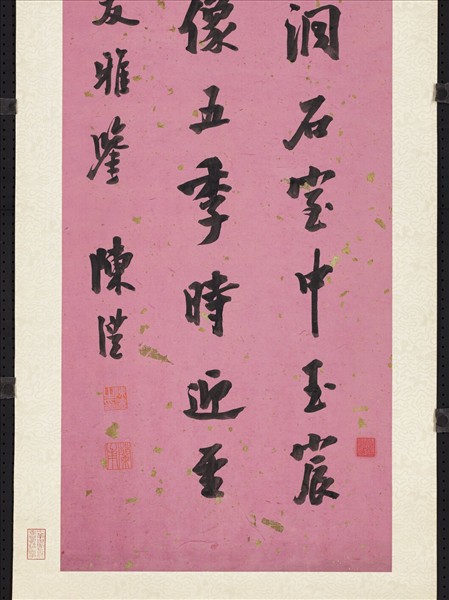 洞石室中玉宸
像五季時迎至
友雅鑒 陳澧